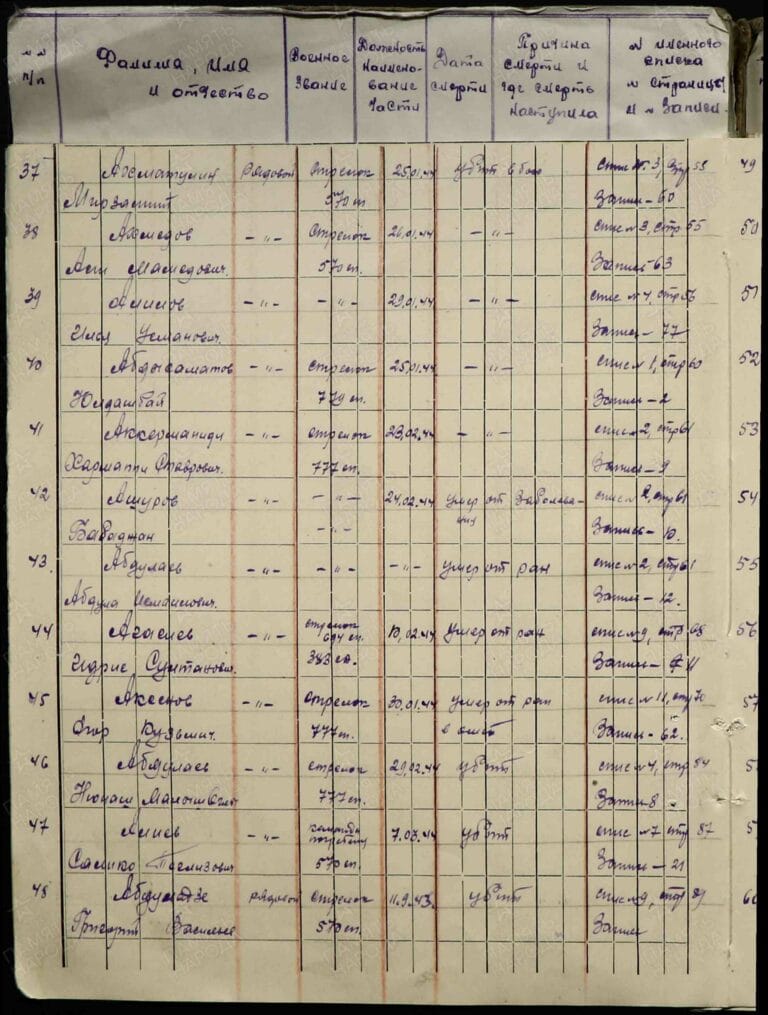 №№ п/п
Фамилия, имя и отчество
Военное звание
Должность наимено-вание части
Дата смерти
Причина смерти и где смерть наступила
№ именного списка № страницы и № записи
37 рядовой стрелок 25.01.44 убит в бою спис № 3, стр 55 49
570 сп. Запись - 60
38 Ахмедов -"- стрелок 26.01.44 -"- спис № 3, стр 55 50
Мамедович. 570 сп. Запись - 63
39 -"- -"- 29.01.44 -"- спис № 4, стр 56 51
Усманович. Запись - 77
40 Абдусаматов -"- стрелок 25.01.44 -"- спис № 1, стр 60 52
Юлдашбай Запись - 2
41 Аккерманиди -"- стрелок 23.02.44 -"- спис № 2, стр 61 53
Ставрович. 777 сп. Запись - 9
42 Ашуров -"- -"- 24.02.44 умер от заболева- спис № 2, стр 61 54
Бабаджан -"- ния Запись - 10.
43. Абдулаев -"- -"- -"- умер от ран спис № 2, стр 61 55
Абдула Исмаилович. Запись - 12.
44 Агасиев -"- стрелок 694 сп. 10.02.44 умер от ран спис № 9, стр 68 56
Идрис Султанович. 383 сд. Запись - 11
45 Аксенов -"- стрелок 30.01.44 умер от ран спис № 11, стр 70 57
Егор Кузьмич. 777 сп. Запись - 62.
46 Абдулаев -"- стрелок 29.02.44 убит спис № 4, стр 84 5
777 сп. Запись 8
47 Алиев -"- 7.03.44 убит спис № 7 стр 87 5
570 сп. Запись - 21
48 рядовой стрелок 11.9.43. убит спис № 9, стр 89 60
Григорий 570 сп. Запись